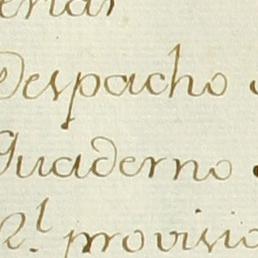 Despacho
Quaderno
R.l provisio